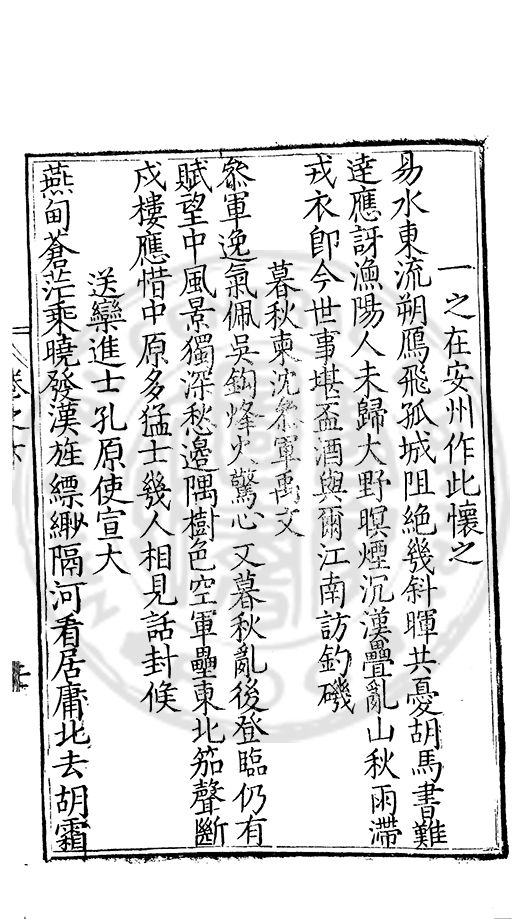 一之在安州作此懷之
易水東流朔鴈飛孤城阻絶幾斜暉共憂胡馬書難
達應訝漁陽人未歸大野暝煙沉漢壘亂山秋雨滯
戎衣卽今世事堪盃酒與爾江南訪釣磯
暮秋柬沈叅軍禹文
叅軍逸氣佩吳鉤烽火驚心又暮秋亂後登臨仍有
賦望中風景獨深愁邊隅樹色空軍壘東北笳聲斷
戍樓應惜中原多猛士幾人相見話封侯
送欒進士孔原使宣大
燕甸蒼茫乘曉發漢旌縹緲隔河看居庸北去胡霜
卷之六